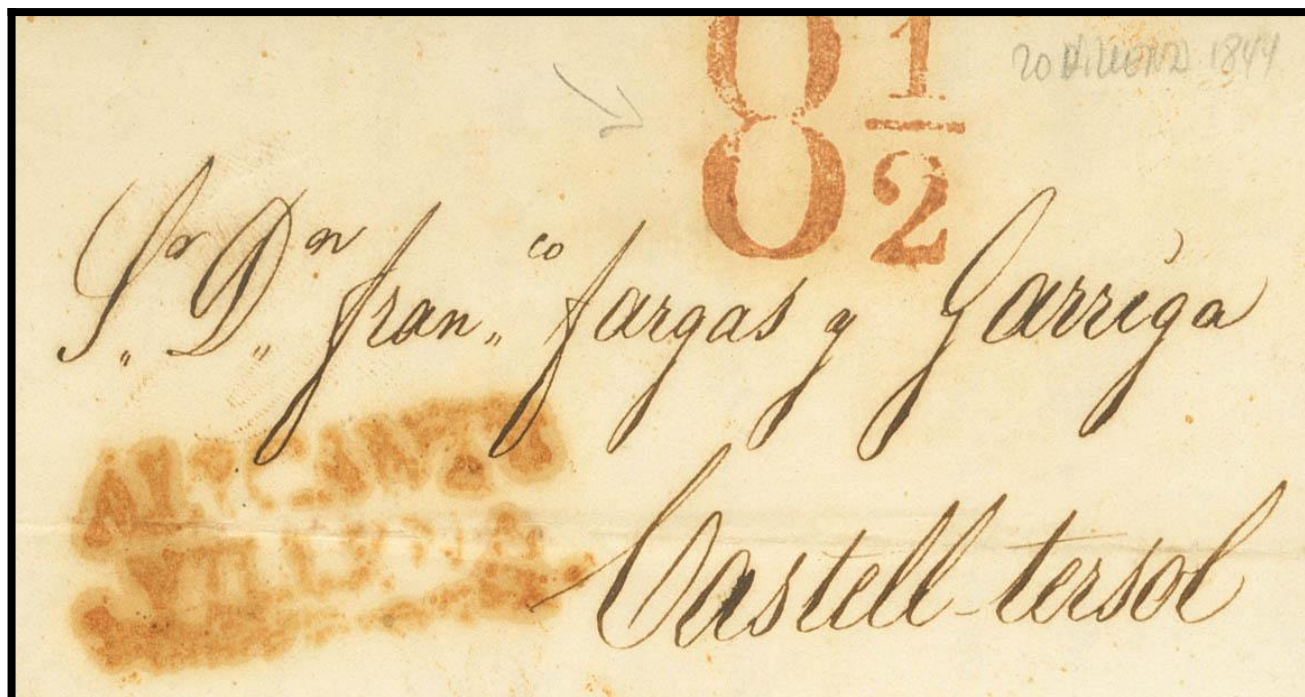 8 1/2
20 1844
Sor. Don. Fran.co Fargas y Garriga
ALYCANTE
Castell-tersol